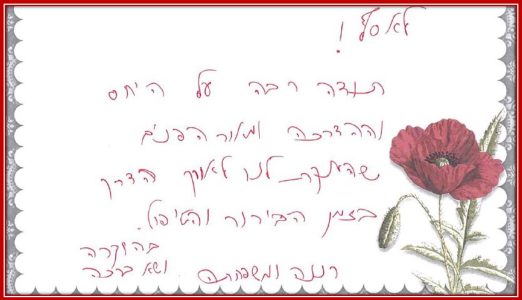 לאסף !
תודה רבה על היחס
וההדרכה ומאור הפנים
שהענקת לנו לאורך הדרך
בזמן הבירור והטיפול.
בהוקרה
ושא ברכה
רננה ומשפחתה